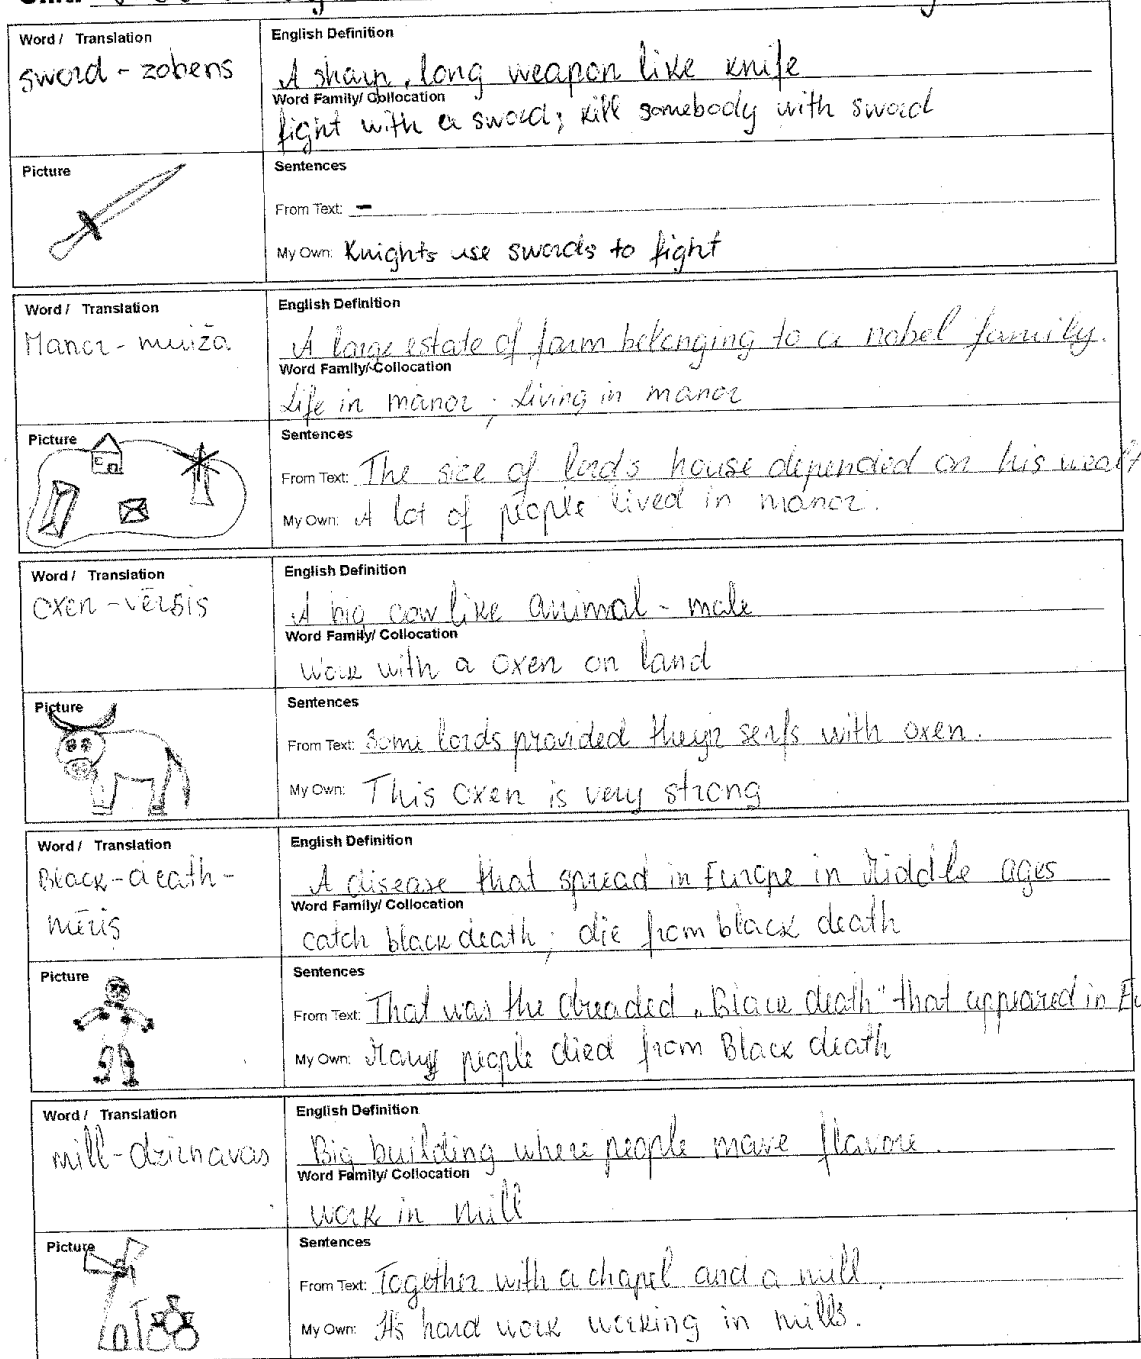 Word / Translation
sword - zobens
English Definition
A sharp, long weapon like knife
Word Family/ Collocation
fight with a sword; kill somebody with sword
Picture
Sentences
From Text: -
My Own: Knights use swords to fight
Word / Translation
Manor - muiža
English Definition
A large estate of farm belonging to a nobel family.
Word Family/ Collocation
Life in manor; Living in manor
Picture
Sentences
From Text: The sice of lord's house depended on his wealt
My Own: A lot of people lived in manor.
Word / Translation
Oxen - vērsis
English Definition
A big cow like animal - male
Word Family/ Collocation
Work with a oxen on land
Picture
Sentences
From Text: Some lords provided theyr serfs with oxen.
My Own: This oxen is very strong
Word / Translation
Black-death -
mēris
English Definition
A disease that spread in Europe in Middle ages
Word Family/ Collocation
catch black death; die from black death
Picture
Sentences
From Text: That was the dreaded „Black death" that appeared in Eu
My Own: Many people died from Black death
Word / Translation
mill - dzirnavas
English Definition
Big building where people make flavore.
Word Family/ Collocation
work in mill
Picture
Sentences
From Text: Together with a chapel and a mill.
My Own: It's hard work working in mills.